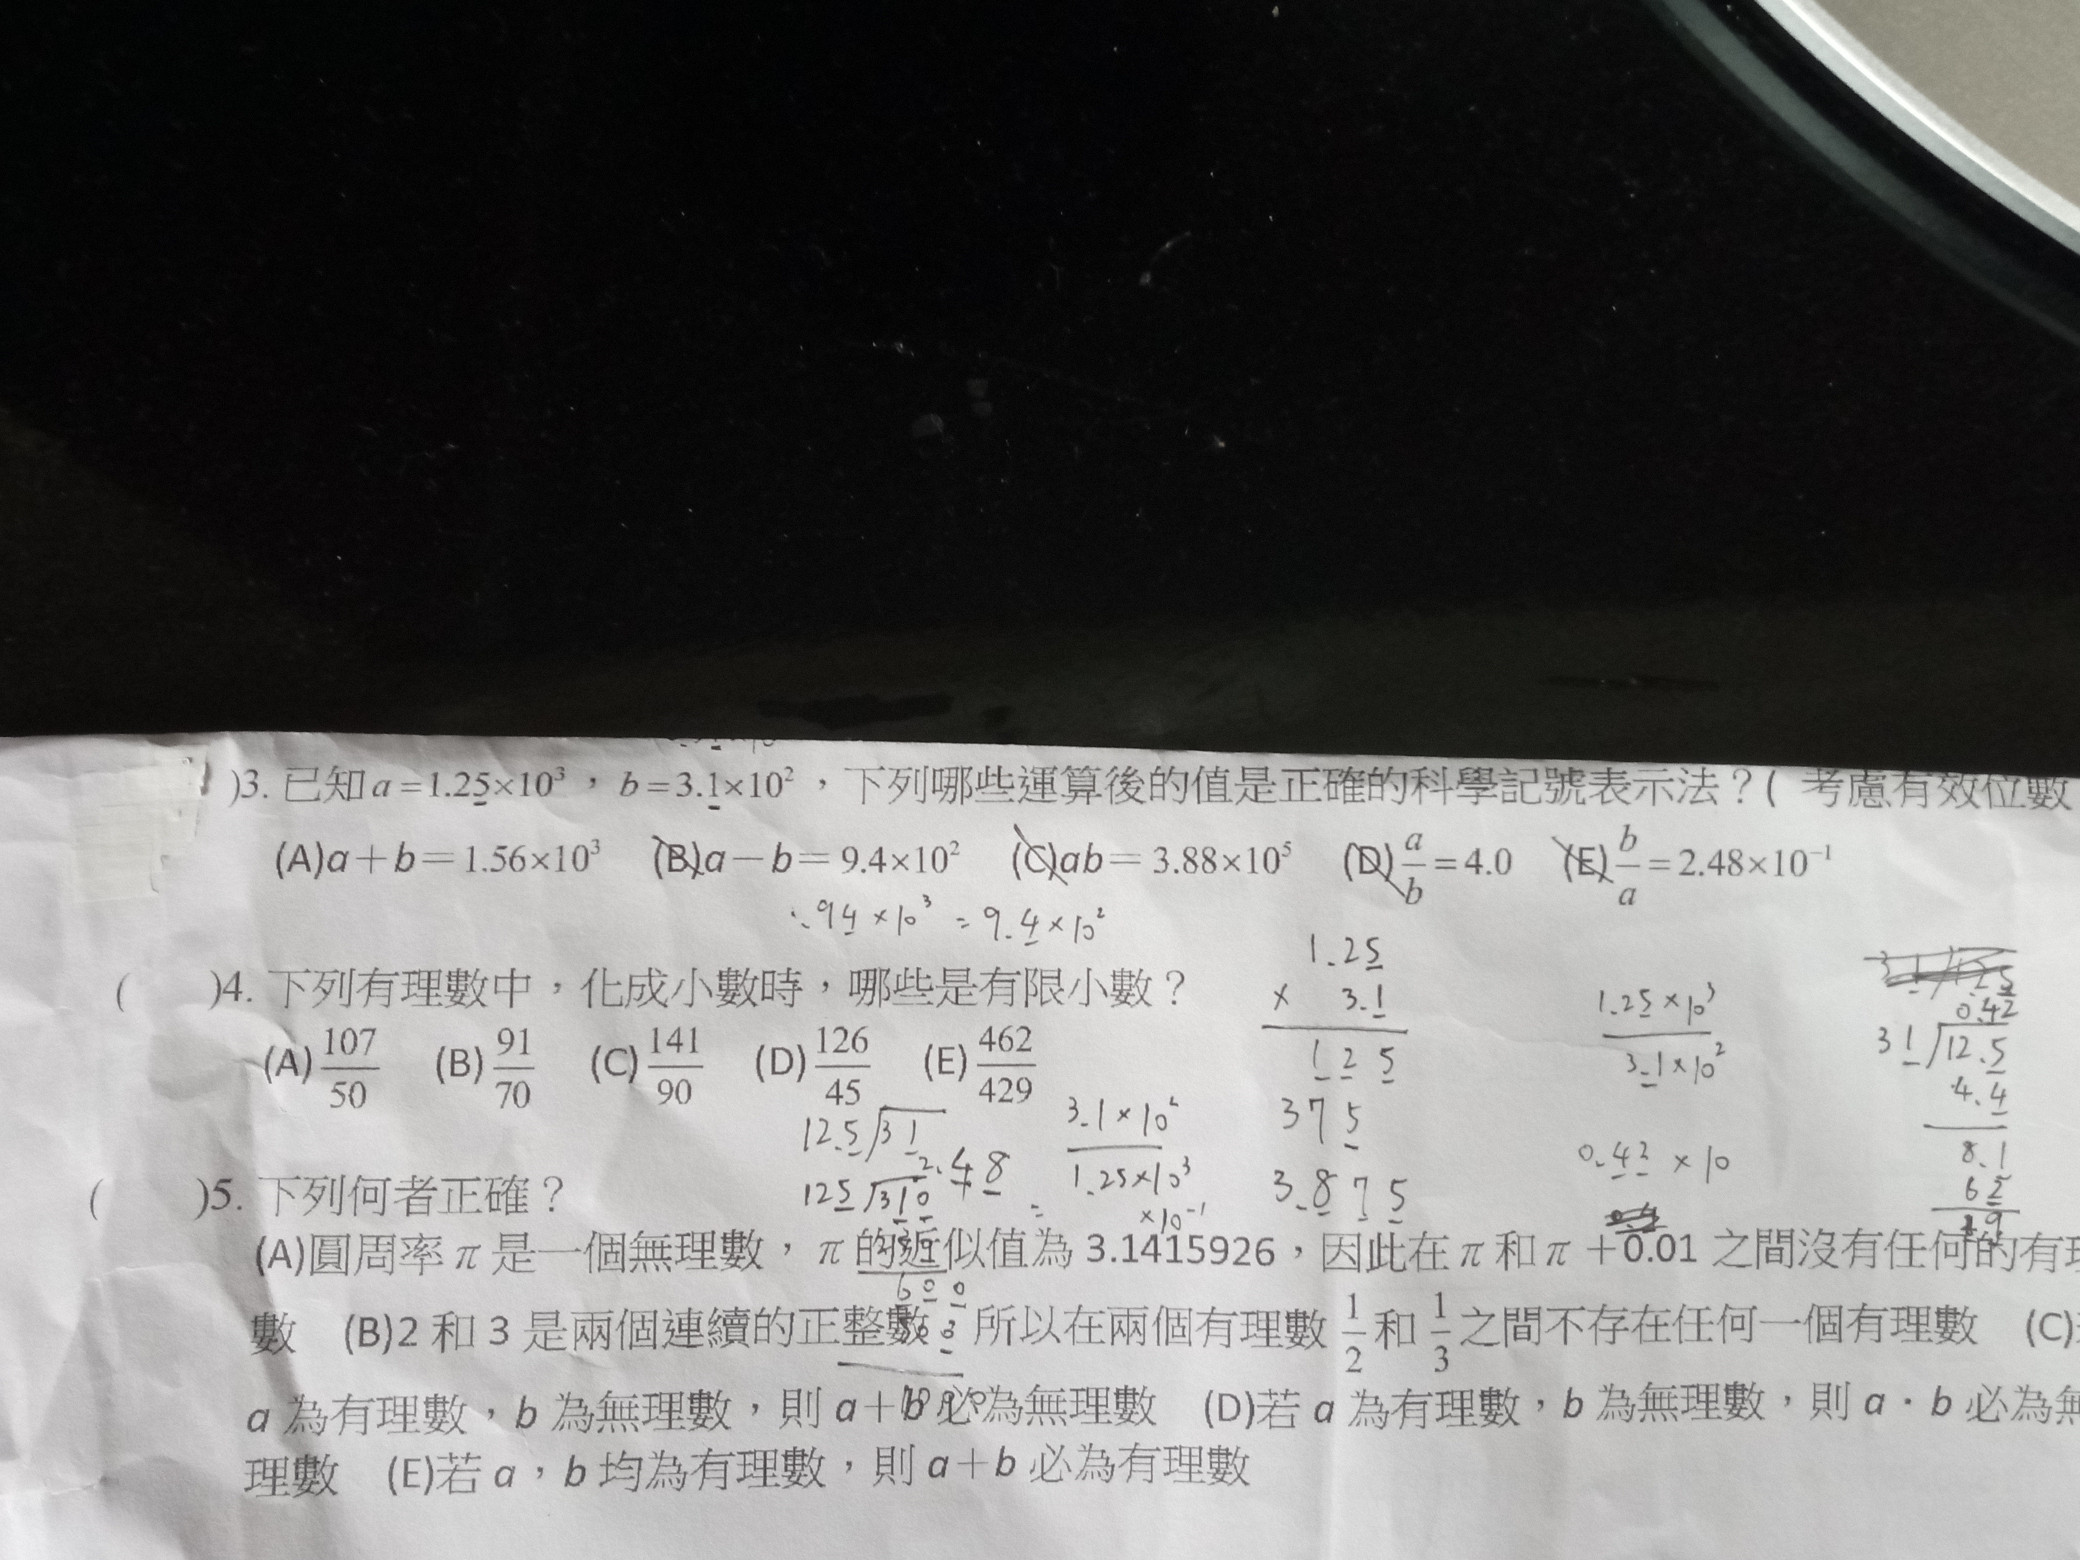 )3. 已知 a=1.25×10³，b=3.1×10²，下列哪些運算後的值是正確的科學記號表示法？( 考慮有效位數
(A)a+b=1.56×10³ (B)a－b=9.4×10² (C)ab=3.88×10⁵ (D)a/b=4.0 (E)b/a=2.48×10⁻¹
.94×10³ = 9.4×10²
( )4. 下列有理數中，化成小數時，哪些是有限小數？
(A)107/50 (B)91/70 (C)141/90 (D)126/45 (E)462/429
1.25
× 3.1
125
375
3.875
1.25×10³
3.1×10²
0.42×10
0.42
31 12.5
4.4
8.1
62
19
12.5 31
2.48
125 310
3.1×10²
1.25×10³
×10⁻¹
600
( )5. 下列何者正確？
(A)圓周率 π 是一個無理數，π 的近似值為 3.1415926，因此在 π 和 π+0.01 之間沒有任何的有理
數 (B)2 和 3 是兩個連續的正整數 所以在兩個有理數 1/2 和 1/3 之間不存在任何一個有理數 (C)
a 為有理數，b 為無理數，則 a+b 必為無理數 (D)若 a 為有理數，b 為無理數，則 a·b 必為無
理數 (E)若 a，b 均為有理數，則 a+b 必為有理數